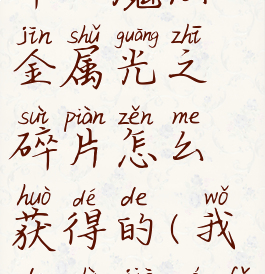 jīn shǔ guāng zhī
金属光之
suì piàn zěn me
碎片怎么
huò dé de wǒ
获得的(我